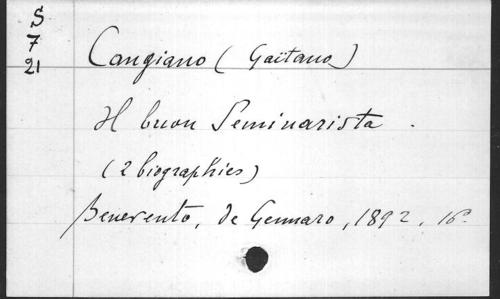 S
7
21
Cangiano (Gaëtano)
Il buon Seminarista.
(2 biographies)
Benevento, de Gennaro, 1892, 16º